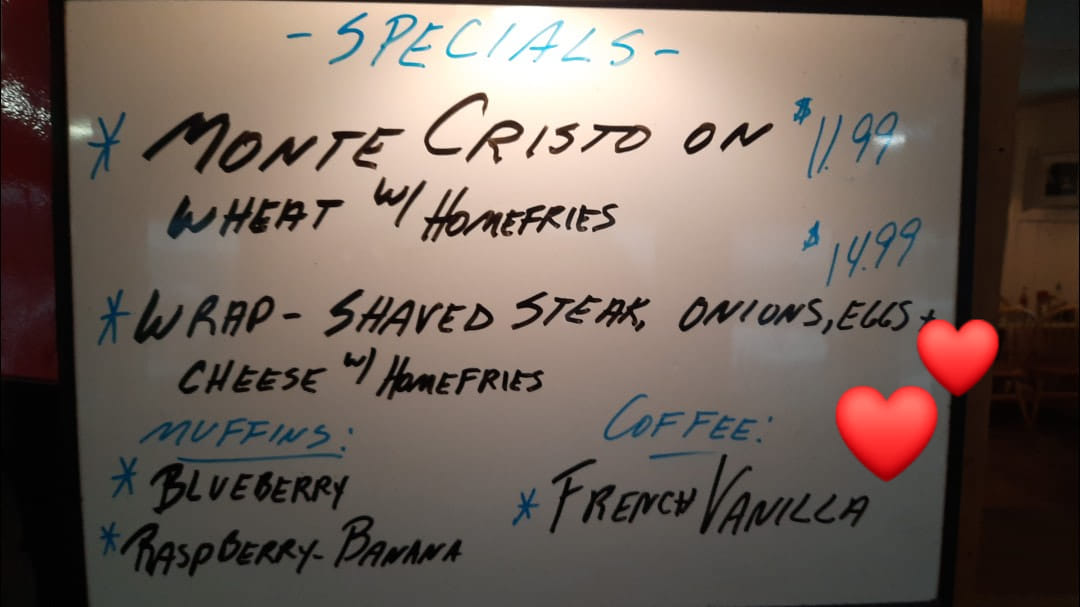 - SPECIALS -
* MONTE CRISTO ON $11.99
WHEAT W/ HOMEFRIES
$14.99
* WRAP - SHAVED STEAK, ONIONS, EGGS +
CHEESE W/ HOMEFRIES
MUFFINS:
* BLUEBERRY
* RASPBERRY-BANANA
COFFEE:
* FRENCH VANILLA